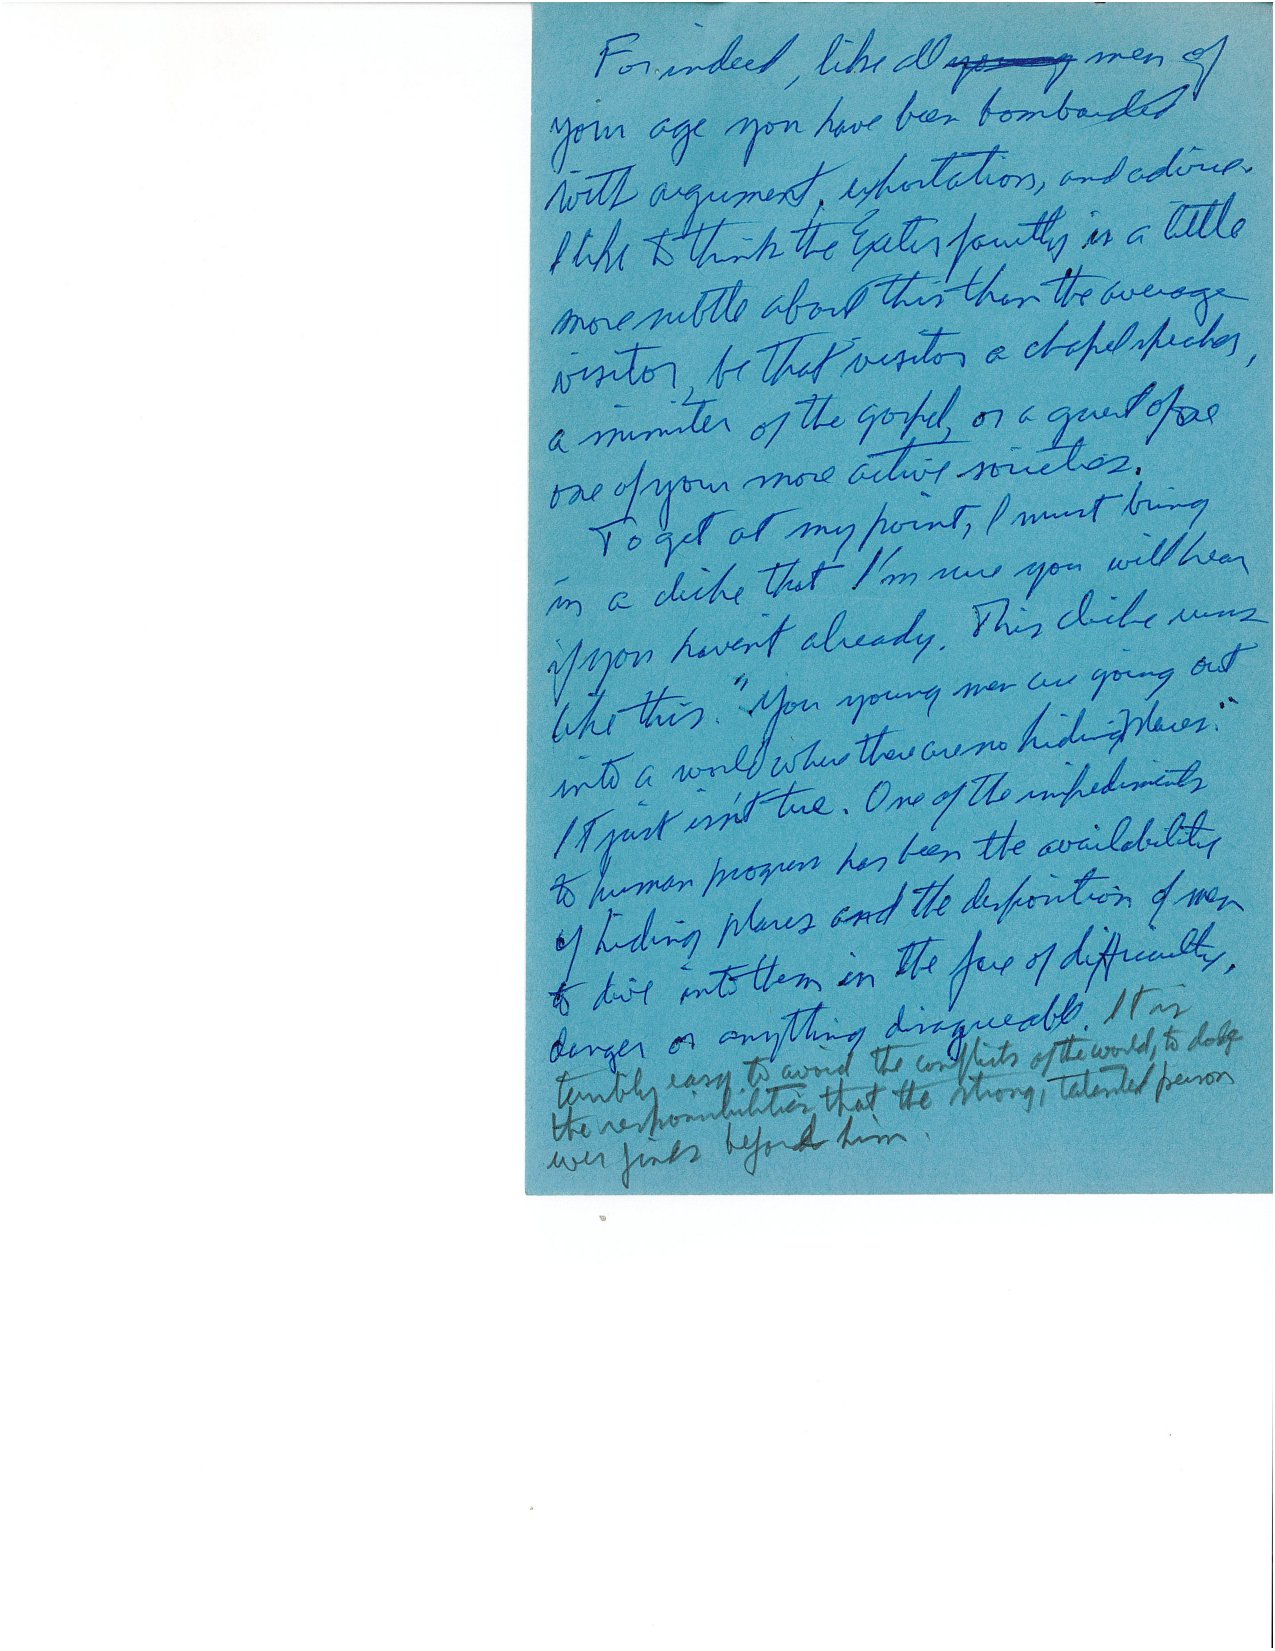 For indeed, like all young men of
your age you have been bombarded
with argument, exhortation, and advice.
I like to think the Exeter faculty is a little
more subtle about this than the average
visitor, be that visitor a chapel speaker,
a minister of the gospel, or a guest of
one of your more active societies.
To get at my point, I must bring
in a cliche that I'm sure you will hear
if you haven't already. This cliche runs
like this. "You young men are going out
into a world where there are no hiding places."
It just isn't true. One of the impediments
to human progress has been the availability
of hiding places and the disposition of men
to dive into them in the face of difficulty,
danger or anything disagreeable. It is
terribly easy to avoid the conflicts of the world, to dodge
the responsibilities that the strong, talented person
ever finds before him.